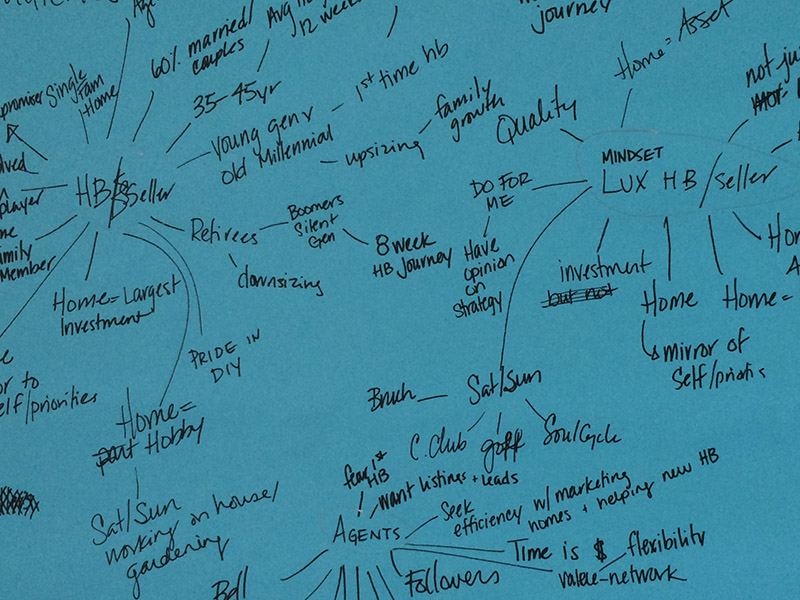 Age
60% married/
couples
12 week
journey
Home = Asset
not ju
Single
Fam
Home
35-45yr
1st time hb
family
growth
Quality
young gen r
old Millennial
upsizing
MINDSET
LUX HB/seller
DO FOR
ME
HB/Seller
player
Family
Member
Retirees
Boomers
Silent
Gen
8 week
HB Journey
Have
opinion
on
strategy
downsizing
investment
but not
Home
Home =
mirror of
Self/prioritis
Home = Largest
Investment
PRIDE IN
DIY
or to
self/priorities
Home =
part Hobby
Sat/Sun
working on house/
gardening
Sat/Sun
Bruch
C. Club
golf
SoulCycle
1st
HB
want listings + leads
AGENTS
Seek
efficiency w/ marketing
homes + helping new HB
Time is $
flexibility
value-network
Followers